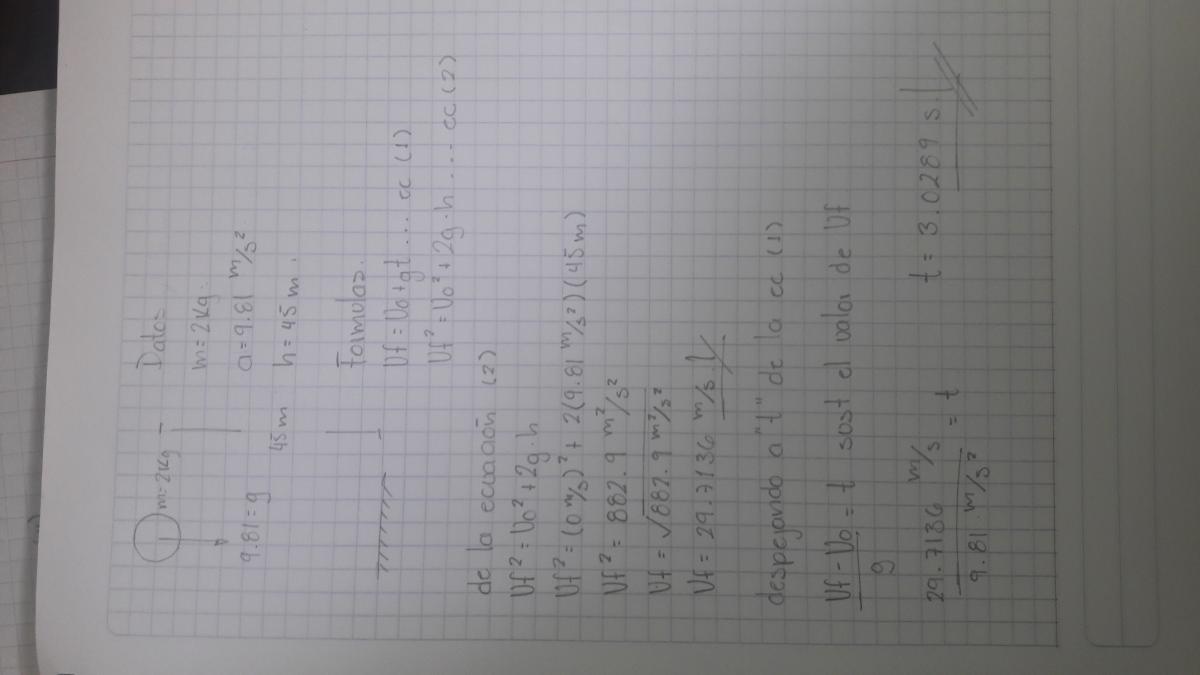 m=2Kg
9.81=g
45m
Datos
m=2Kg.
a=9.81 m/s²
h=45m.
Formulas.
Vf=Vo+gt.... ec (1)
Vf²=Vo²+2g.h.... ec (2)
de la ecuación (2)
Vf²=Vo²+2g.h
Vf²=(0 m/s)²+2(9.81 m/s²)(45m)
Vf²=882.9 m²/s²
Vf=√882.9 m²/s²
Vf=29.7136 m/s
despejando a "t" de la ec (1)
Vf-Vo/g=t sost el valor de Vf
29.7136 m/s / 9.81 m/s² = t t=3.0289 s